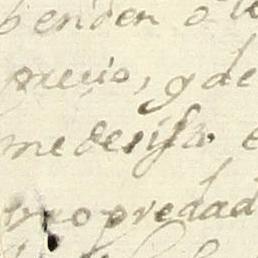 benden a lo
precio, y de
me desisa. e
propredad